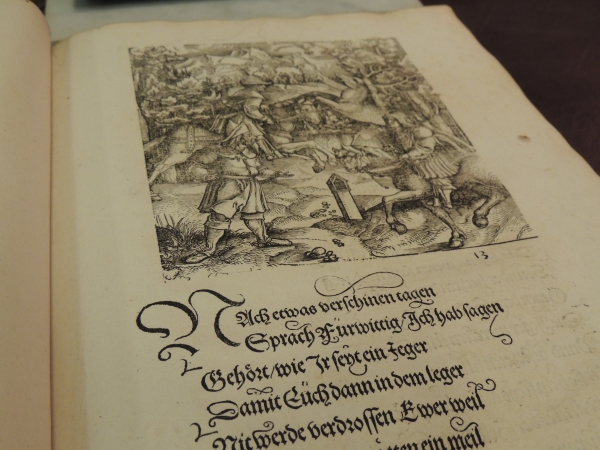 13
NAch etwas verschinen tagen
Sprach Fürwittig/Ich hab sagen
Gehört/wie Ir seyt ein Jeger
Damit Eüch dann in dem leger
Nit werde verdrossen Ewer weil
ein meil